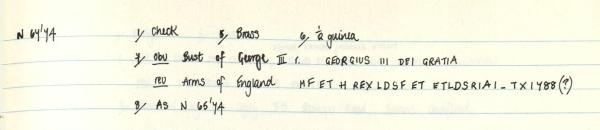 N 64'74 1/ Check 5/ Brass 6/ ½ guinea
7/ obv Bust of George III r. GEORGIUS III DEI GRATIA
rev Arms of England MF ET H REX LDSF ET ETLDSRIAI - TX 1788 (?)
8/ AS N 65'74